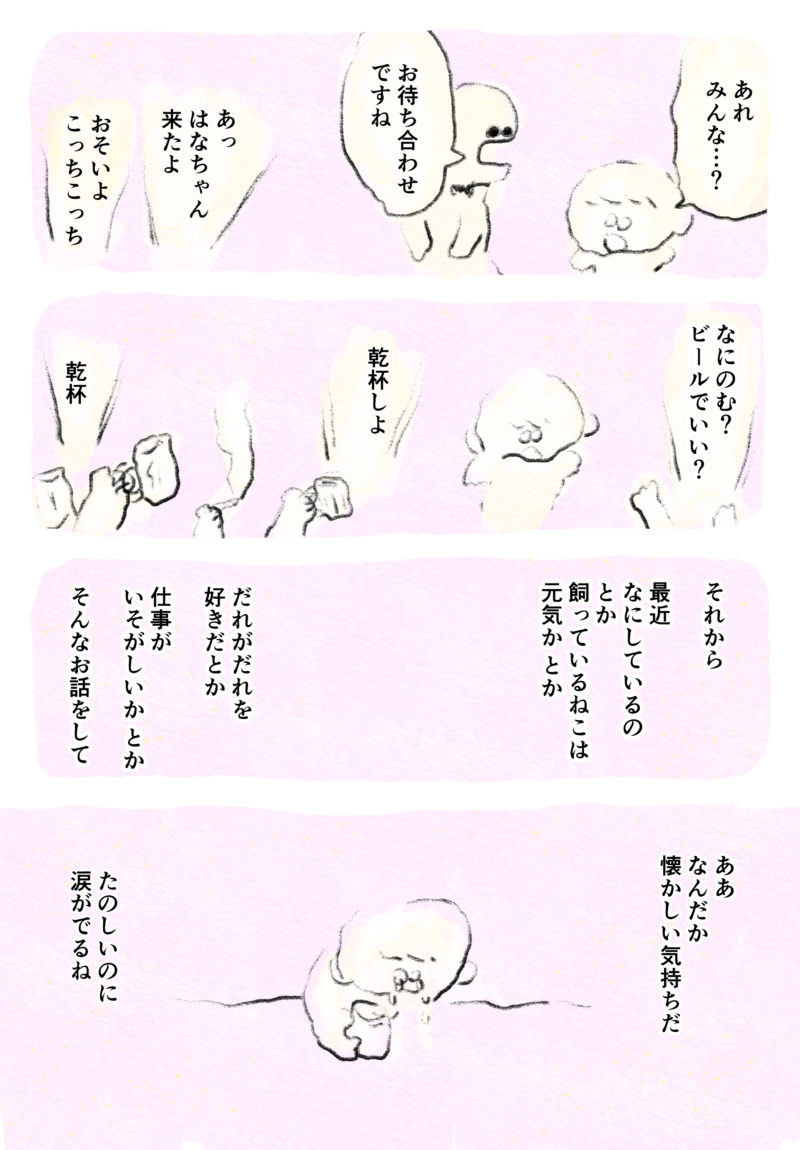 あれ
みんな…？
お待ち合わせ
ですね
あっ
はなちゃん
来たよ
おそいよ
こっちこっち
なにのむ？
ビールでいい？
乾杯しよ
乾杯
それから
最近
なにしているの
とか
飼っているねこは
元気か とか
だれがだれを
好きだとか
仕事が
いそがしいか とか
そんなお話をして
ああ
なんだか
懐かしい気持ちだ
たのしいのに
涙がでるね